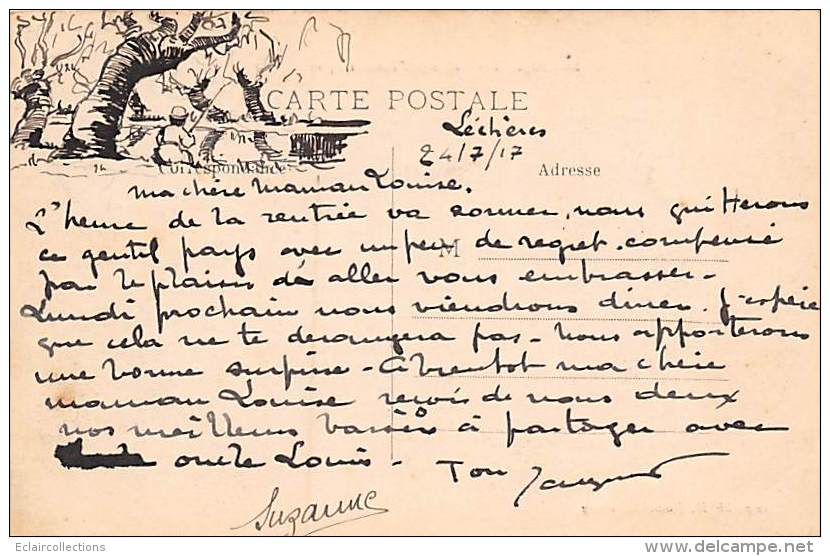 CARTE POSTALE
Léchères
24/7/17
Correspondance
Adresse
ma chère maman Louise.
L'heure de la rentrée va sonner, nous quitterons
ce gentil pays avec un peu de regret. compensé
M
par le plaisir de aller vous embrasser-
Lundi prochain nous viendrons diner. J'espère
que cela ne te derangera pas- nous apporterons
une bonne surprise- A bientot ma chère
maman Louise reçois de nous deux
nos meilleurs baisers à partager avec
oncle Louis- Ton Jacques
Suzanne
Eclaircollections
www.delcampe.net